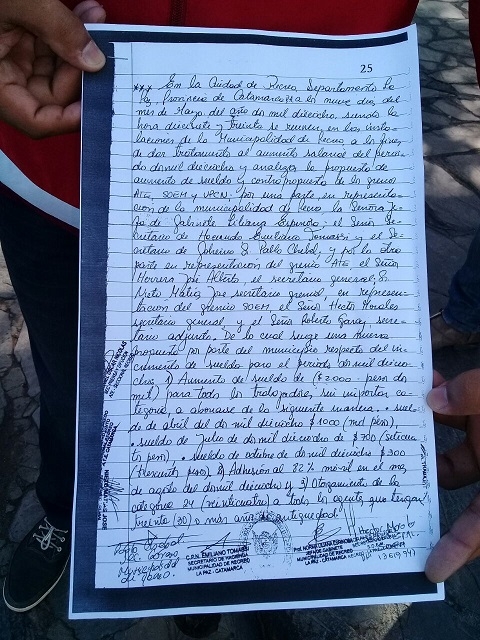 25
*** En la Ciudad de Recreo, Departamento La
Paz, Provincia de Catamarca a los nueve dias del
mes de Mayo del año dos mil dieciocho, siendo la
hora diecisiete y treinta se reunen, en las insta-
laciones de la Municipalidad de Recreo a los fines
de dar tratamiento al aumento salarial del perio
do dos mil dieciocho y analizar la propuesta de
aumento de sueldo y contrapropuesta de los gremios
ATE, SOEM y UPCN; por una parte en representa
ción de la municipalidad de Recreo la Señora Je
fa de Gabinete Liliana Espinosa; el Señor Se
cretario de Hacienda Emiliano Tomassi y el Se
cretario de Gobierno Pablo Chabol, y por la otra
parte en representacion del gremio ATE, el Señor
Herrera Jose Alberto, el secretario general; Sr
Nieto Matias Jose secretario gremial, en represen-
tacion del gremio SOEM, el Señor Hector Morales
secretario general, y el Señor Roberto Garay, secre-
tario adjunto. De lo cual surge una nueva
propuesta por parte del municipio respecto del in-
cremento de sueldo para el periodo dos mil dieci-
ocho, 1) Aumento de sueldo de ($2.000 - pesos dos
mil) para todos los trabajadores, sin importar ca-
tegoria, a abonarse de la siguiente manera. • suel-
do de abril del dos mil dieciocho $1000 (mil pesos),
• sueldo de Julio de dos mil dieciocho de $700 (setecien
tos pesos), • sueldo de octubre de dos mil dieciocho $300
(trescientos pesos) 2) Adhesión al 82% movil en el mes
de agosto del dos mil dieciocho y 3) Otorgamiento de la
categoria 24 (veinticuatro) a todos los agentes que tengan
treinta (30) o mas años de antiguedad.
C.P.N. EMILIANO TOMASSI
SECRETARIO DE HACIENDA
MUNICIPALIDAD DE RECREO
LA PAZ - CATAMARCA
JEFA DE GABINETE
MUNICIPALIDAD DE RECREO
LA PAZ - CATAMARCA